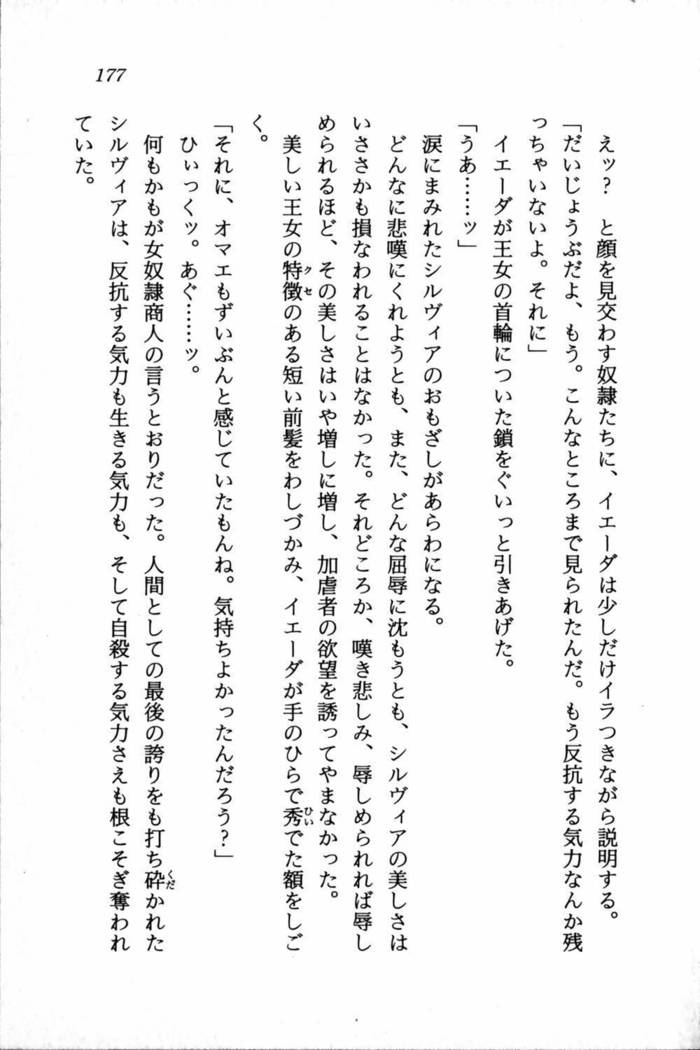 177
えッ?　と顔を見交わす奴隷たちに、イエーダは少しだけイラつきながら説明する。
「だいじょうぶだよ、もう。こんなところまで見られたんだ。もう反抗する気力なんか残
っちゃいないよ。それに」
イエーダが王女の首輪についた鎖をぐいっと引きあげた。
「うあ……ッ」
涙にまみれたシルヴィアのおもざしがあらわになる。
どんなに悲嘆にくれようとも、また、どんな屈辱に沈もうとも、シルヴィアの美しさは
いささかも損なわれることはなかった。それどころか、嘆き悲しみ、辱しめられれば辱し
められるほど、その美しさはいや増しに増し、加虐者の欲望を誘ってやまなかった。
美しい王女の特徴クセのある短い前髪をわしづかみ、イエーダが手のひらで秀ひいでた額をしご
く。
「それに、オマエもずいぶんと感じていたもんね。気持ちよかったんだろう?」
ひぃっくッ。あぐ……ッ。
何もかもが女奴隷商人の言うとおりだった。人間としての最後の誇りをも打ち砕くだかれた
シルヴィアは、反抗する気力も生きる気力も、そして自殺する気力さえも根こそぎ奪われ
ていた。